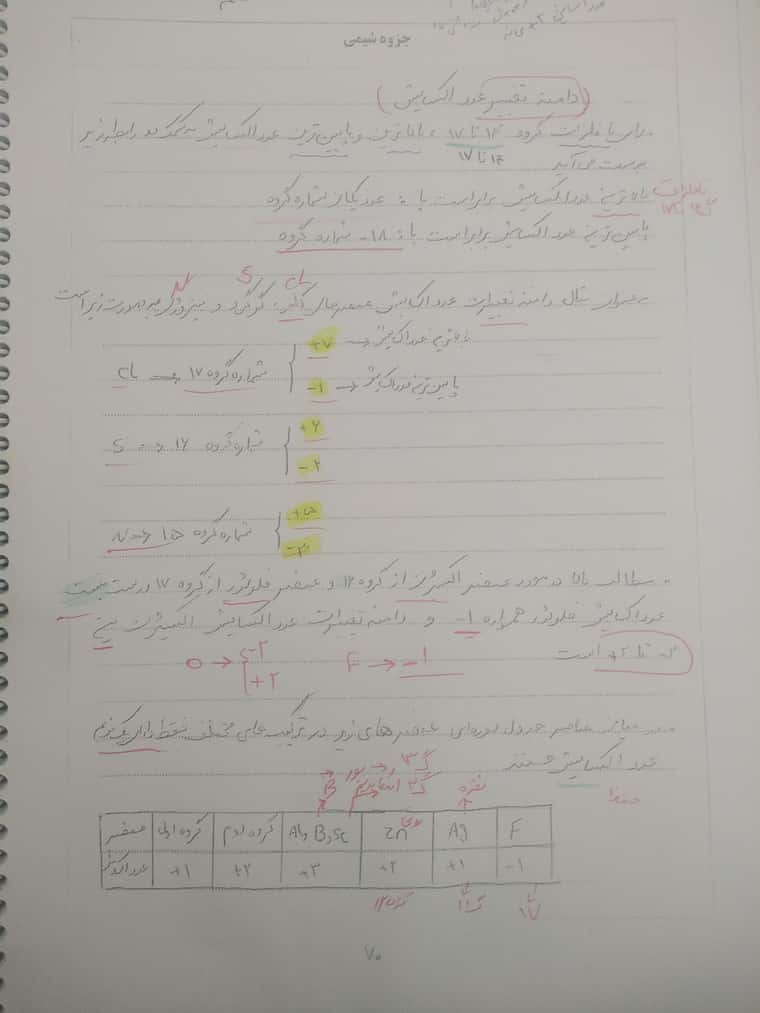 جزوه شیمی
(دامنه تغییر عدد اکسایش)
برای نافلزات گروه ۱۴ تا ۱۷، بالاترین و پایین‌ترین عدد اکسایش به کمک دو رابطه زیر
۱۴ تا ۱۷
بدست می‌آید
بالاترین عدد اکسایش برابر است با: عدد یکان شماره گروه
نافلزات
پایین‌ترین عدد اکسایش برابر است با: ۱۸- شماره گروه
N S Cl
به عنوان مثال دامنه تغییرات عدد اکسایش عنصرهای کلر، گوگرد و نیتروژن به صورت زیر است
Cl → شماره گروه ۱۷ { +۷ → بالاترین عدد اکسایش
-۱ → پایین‌ترین عدد اکسایش
S → شماره گروه ۱۶ { +۶
-۲
N → شماره گروه ۱۵ { +۵
-۳
مطالب بالا در مورد عنصر اکسیژن از گروه ۱۶ و عنصر فلوئور از گروه ۱۷ درست نیست
عدد اکسایش فلوئور همواره -۱ و دامنه تغییرات عدد اکسایش اکسیژن بین
-۲ تا +۲ است
F → -۱
O → { -۲
+۲
در میان عناصر جدول دوره‌ای عنصرهای زیر در ترکیب‌های مختلف فقط دارای یک نوع
عدد اکسایش هستند
حفظ
بور → گ ۱۳
نقره
عنصر گروه اول گروه دوم Al, B, Sc Zn Ag F
عدد اکسایش +۱ +۲ +۳ +۲ +۱ -۱
گروه ۱۲ گ ۱۱ گ ۱۷
۷۰